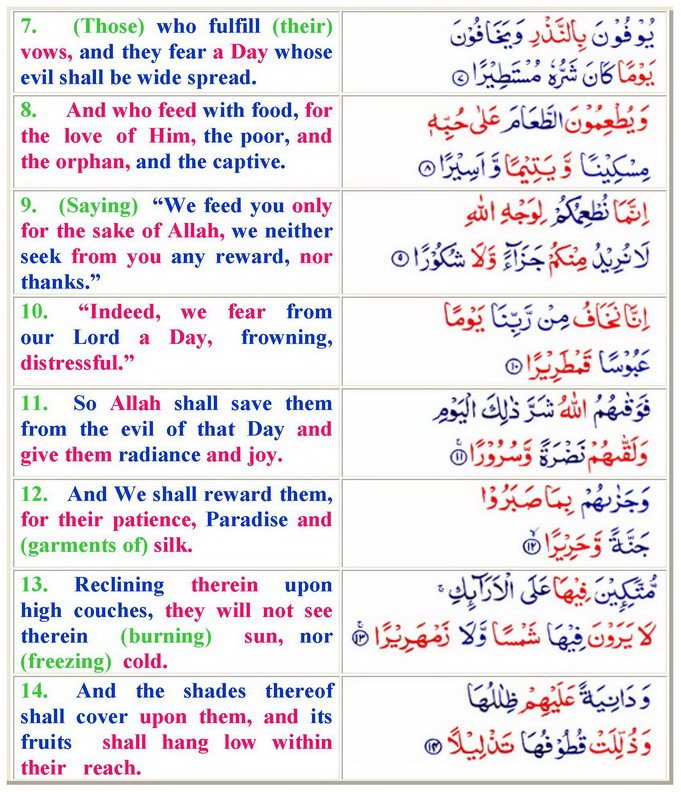 7. (Those) who fulfill (their)
vows, and they fear a Day whose
evil shall be wide spread.
يُوْفُوْنَ بِالنَّذْرِ وَيَخَافُوْنَ
يَوْمًا كَانَ شَرُّهٗ مُسْتَطِيْرًا ۷
8. And who feed with food, for
the love of Him, the poor, and
the orphan, and the captive.
وَيُطْعِمُوْنَ الطَّعَامَ عَلٰى حُبِّهٖ
مِسْكِيْنًا وَّيَتِيْمًا وَّاَسِيْرًا ۸
9. (Saying) “We feed you only
for the sake of Allah, we neither
seek from you any reward, nor
thanks.”
اِنَّمَا نُطْعِمُكُمْ لِوَجْهِ اللّٰهِ
لَا نُرِيْدُ مِنْكُمْ جَزَآءً وَّلَا شُكُوْرًا ۹
10. “Indeed, we fear from
our Lord a Day, frowning,
distressful.”
اِنَّا نَخَافُ مِنْ رَّبِّنَا يَوْمًا
عَبُوْسًا قَمْطَرِيْرًا ۱۰
11. So Allah shall save them
from the evil of that Day and
give them radiance and joy.
فَوَقٰىهُمُ اللّٰهُ شَرَّ ذٰلِكَ الْيَوْمِ
وَلَقّٰىهُمْ نَضْرَةً وَّسُرُوْرًا ۱۱
12. And We shall reward them,
for their patience, Paradise and
(garments of) silk.
وَجَزٰىهُمْ بِمَا صَبَرُوْا
جَنَّةً وَّحَرِيْرًا ۱۲
13. Reclining therein upon
high couches, they will not see
therein (burning) sun, nor
(freezing) cold.
مُّتَّكِـِٕيْنَ فِيْهَا عَلَى الْاَرَآىِٕكِ ۚ
لَا يَرَوْنَ فِيْهَا شَمْسًا وَّلَا زَمْهَرِيْرًا ۱۳
14. And the shades thereof
shall cover upon them, and its
fruits shall hang low within
their reach.
وَدَانِيَةً عَلَيْهِمْ ظِلٰلُهَا
وَذُلِّلَتْ قُطُوْفُهَا تَذْلِيْلًا ۱۴